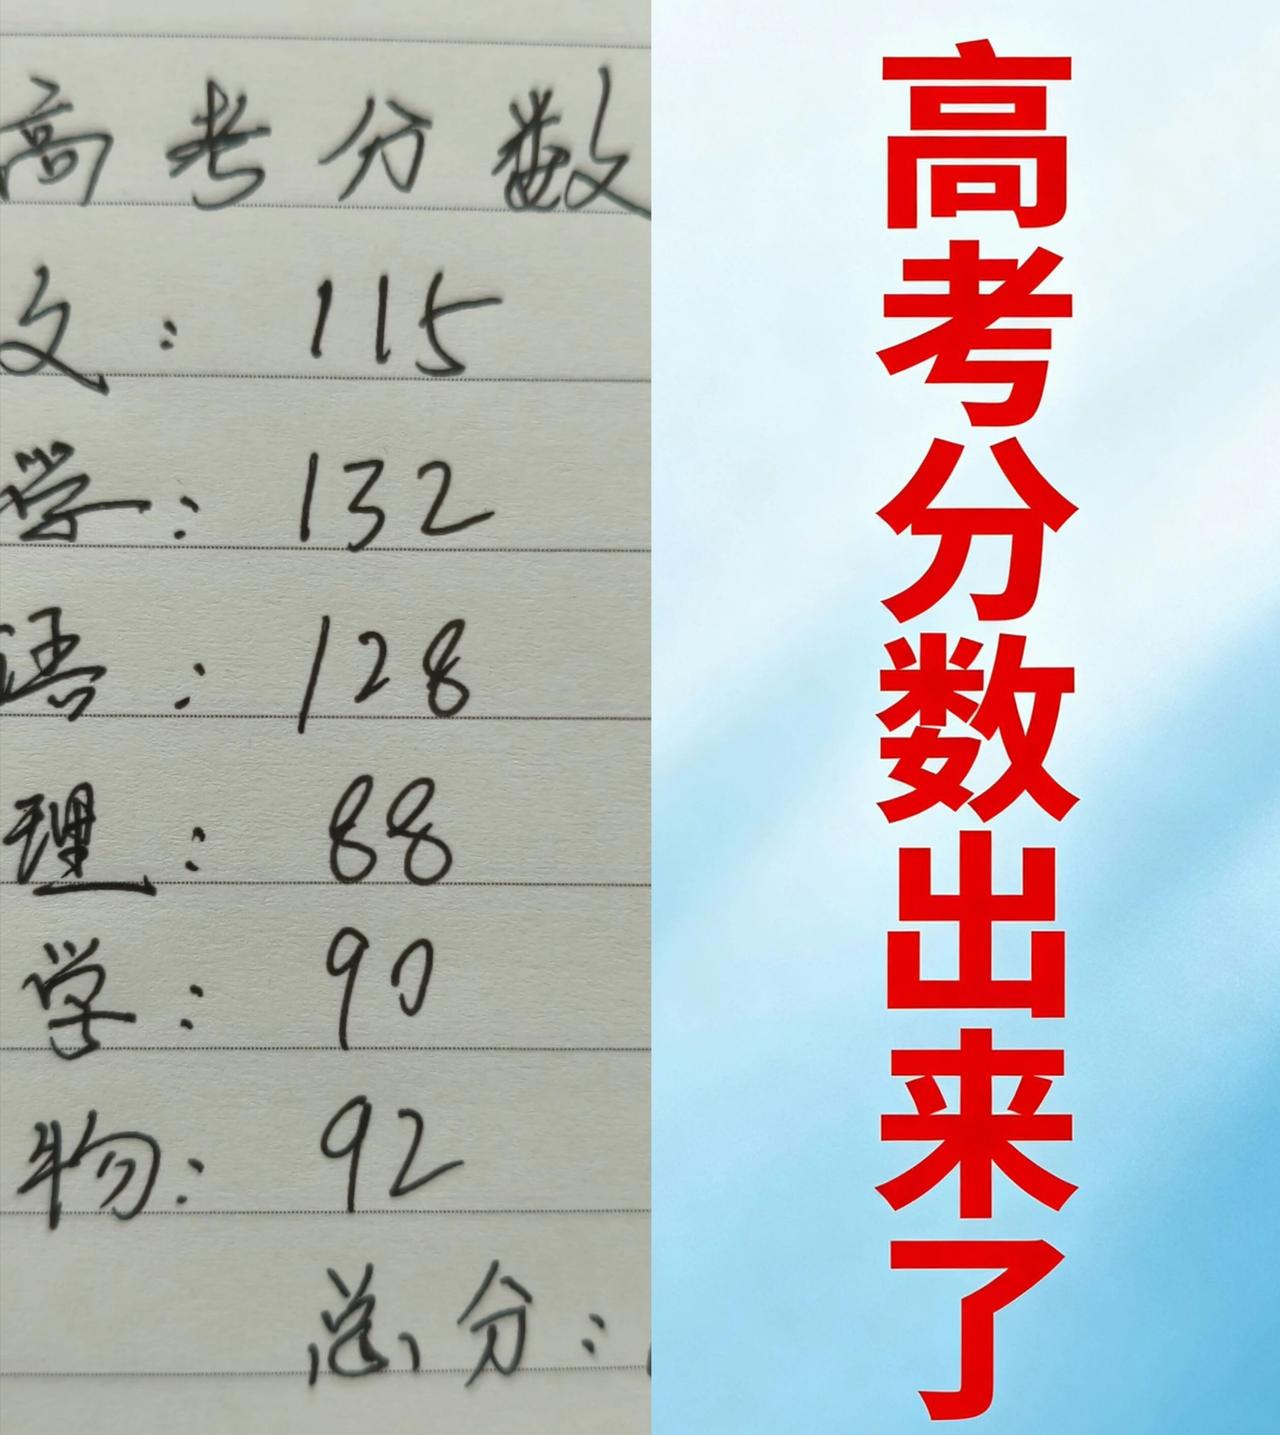 高考分数
文：115
学：132
语：128
理：88
学：90
物：92
总分：
高考分数出来了